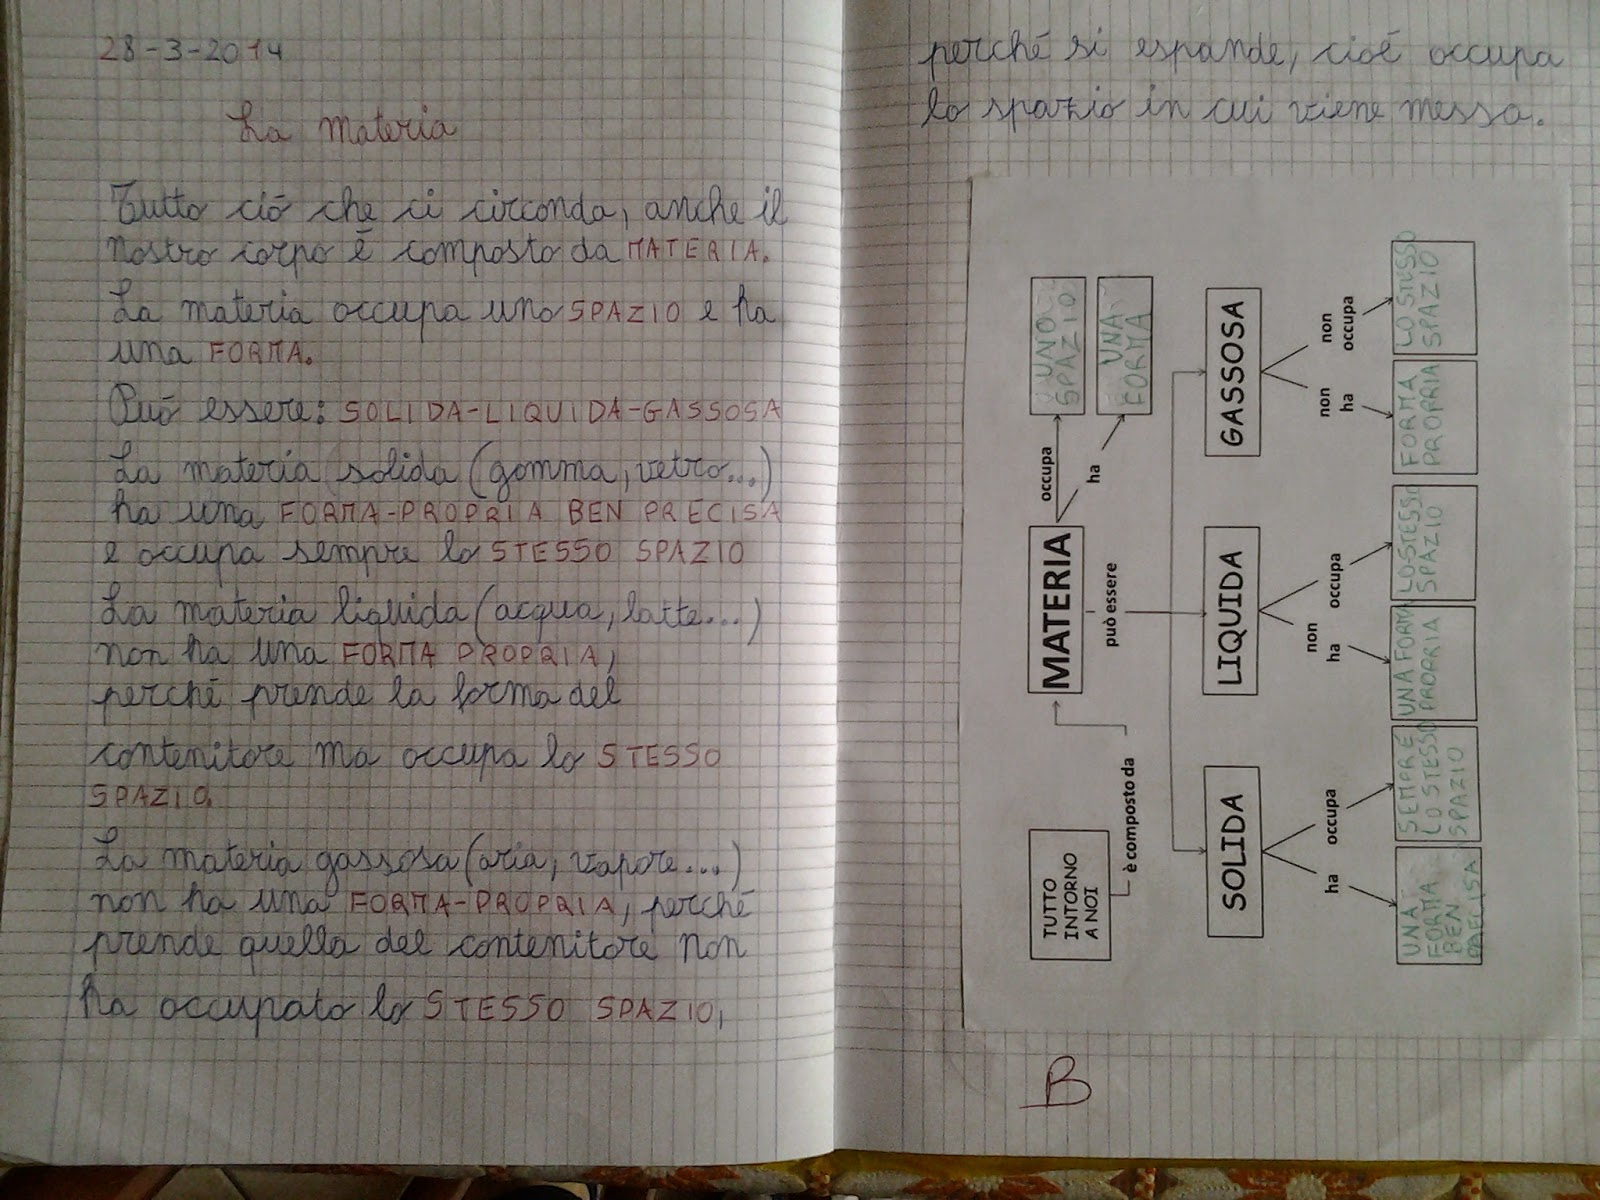 28-3-2014
La materia
Tutto ciò che ci circonda, anche il
nostro corpo è composto da MATERIA.
La materia occupa uno SPAZIO e ha
una FORMA.
Può essere: SOLIDA-LIQUIDA-GASSOSA
La materia solida (gomma, vetro...)
ha una FORMA-PROPRIA BEN PRECISA
e occupa sempre lo STESSO SPAZIO
La materia liquida (acqua, latte...)
non ha una FORMA PROPRIA,
perché prende la forma del
contenitore ma occupa lo STESSO
SPAZIO.
La materia gassosa (aria, vapore...)
non ha una FORMA-PROPRIA, perché
prende quella del contenitore non
ha occupato lo STESSO SPAZIO,
perché si espande, cioé occupa
lo spazio in cui viene messa.
TUTTO
INTORNO
A NOI
è composto da
MATERIA
occupa
UNO
SPAZIO
ha
UNA
FORMA
può essere
SOLIDA
LIQUIDA
GASSOSA
ha
occupa
non
ha
occupa
non
ha
non
occupa
UNA
FORMA
BEN
PRECISA
SEMPRE
LO STESSO
SPAZIO
UNA FORMA
PROPRIA
LO STESSO
SPAZIO
FORMA
PROPRIA
LO STESSO
SPAZIO
B